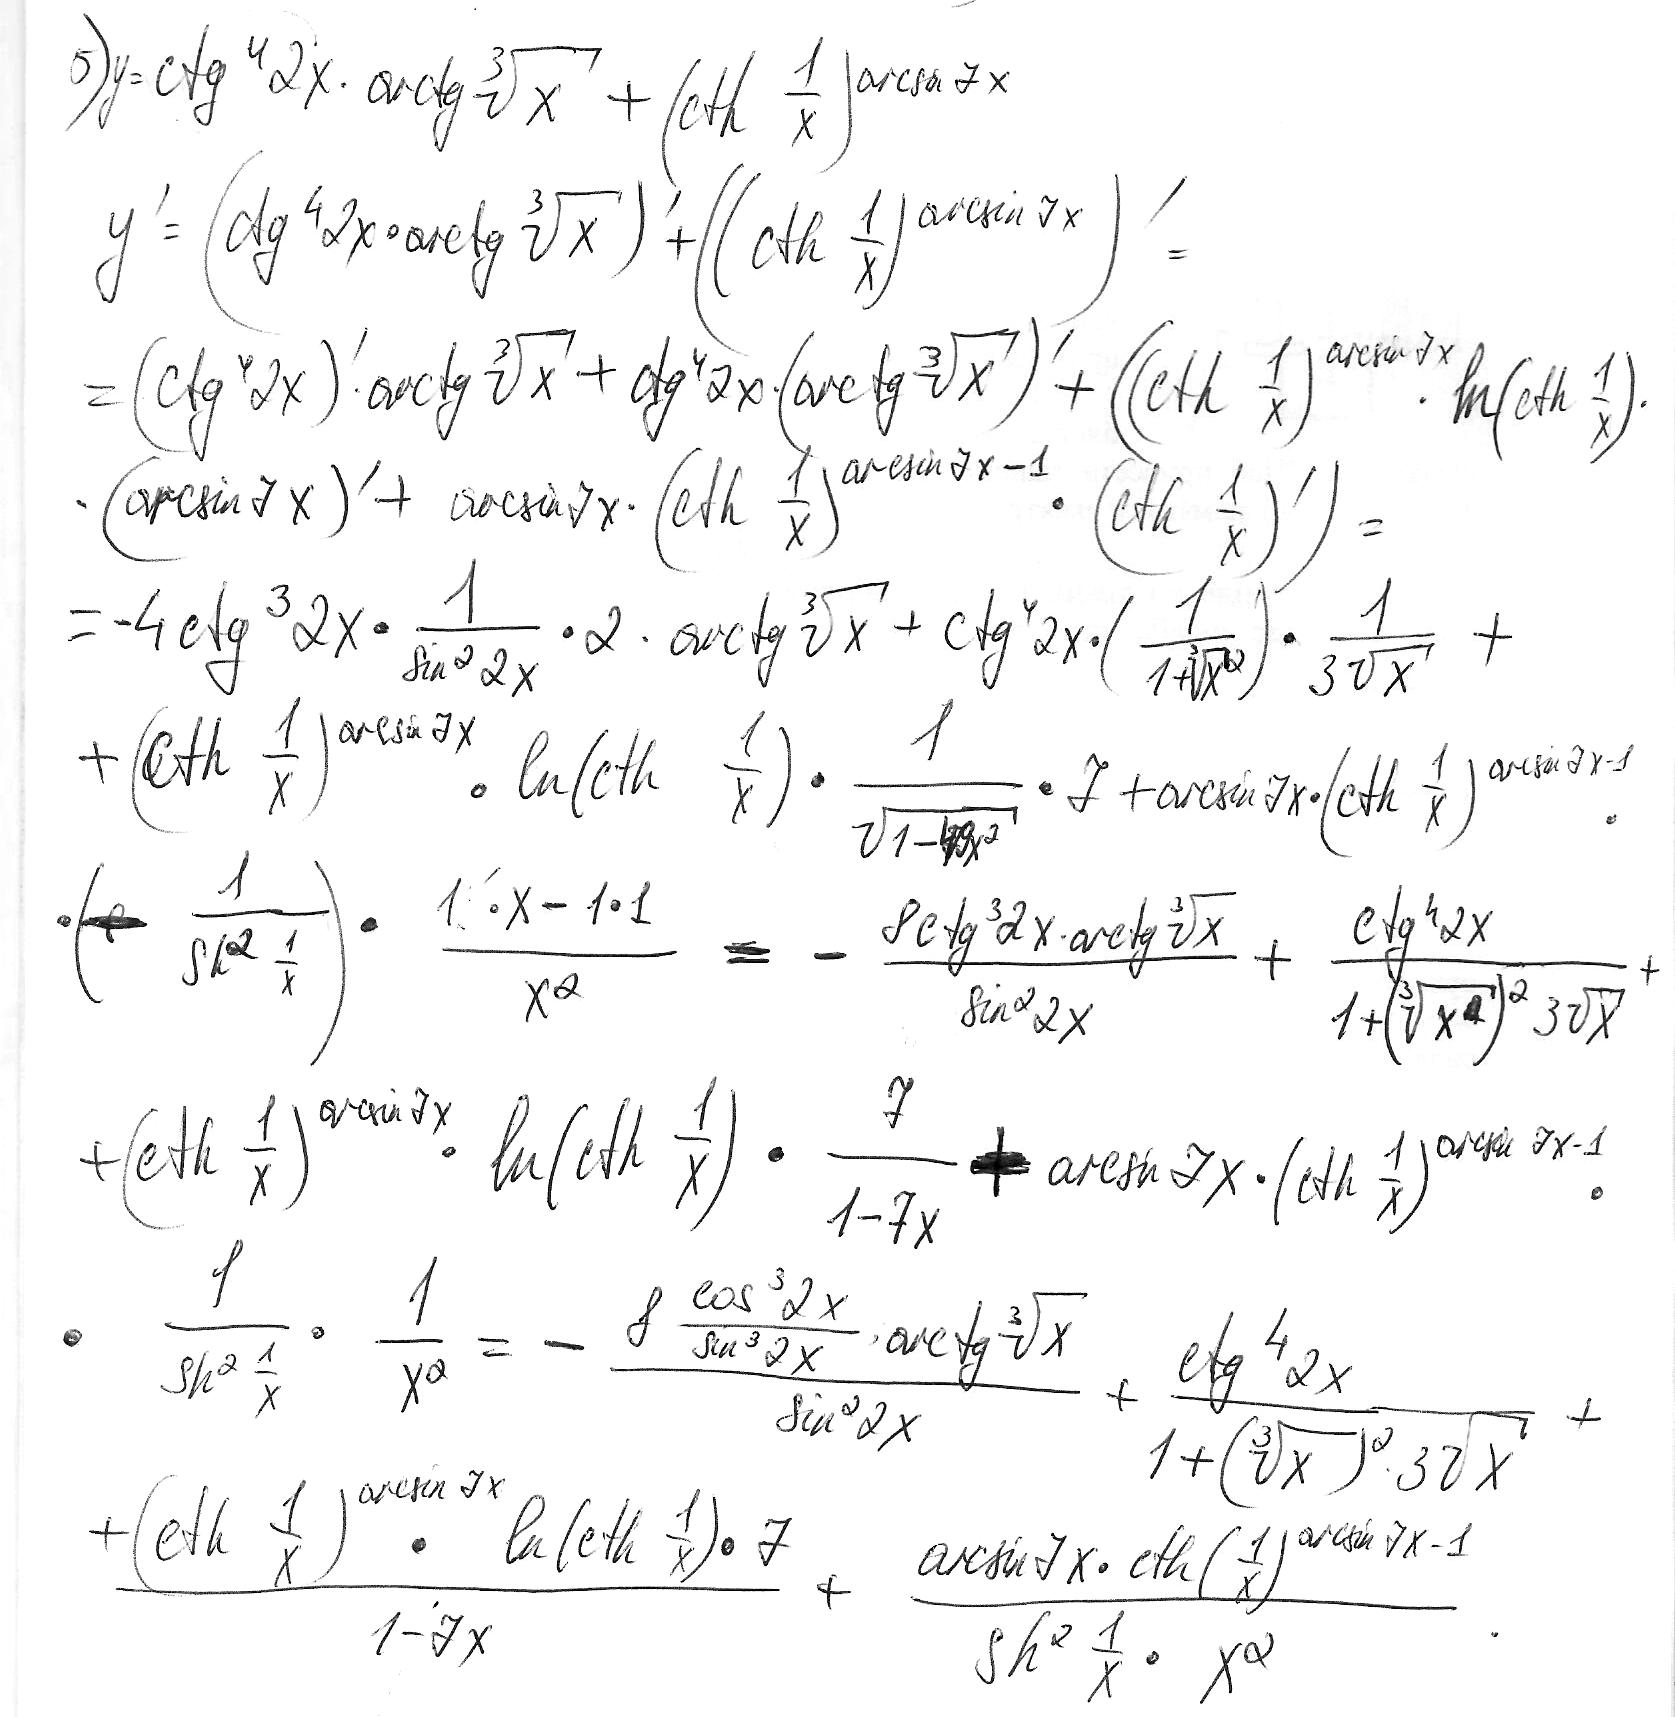 5) y = ctg⁴2x · arctg ∛x + (cth 1/x)^(arcsin 7x)
y' = (ctg⁴2x · arctg ∛x)' + ((cth 1/x)^(arcsin 7x))' =
= (ctg⁴2x)' · arctg ∛x + ctg⁴2x · (arctg ∛x)' + ((cth 1/x)^(arcsin 7x) · ln(cth 1/x) ·
· (arcsin 7x)' + arcsin 7x · (cth 1/x)^(arcsin 7x-1) · (cth 1/x)') =
= -4ctg³2x · 1/(sin²2x) · 2 · arctg ∛x + ctg⁴2x · (1/(1+∛x²)) · 1/(3√x) +
+ (cth 1/x)^(arcsin 7x) · ln(cth 1/x) · 1/√(1-49x²) · 7 + arcsin 7x · (cth 1/x)^(arcsin 7x-1) ·
· (- 1/(sh² 1/x)) · (1' · x - 1 · 1)/x² = - (8ctg³2x · arctg ∛x)/(sin²2x) + ctg⁴2x/(1+(∛x)² 3√x) +
+ (cth 1/x)^(arcsin 7x) · ln(cth 1/x) · 7/(1-7x) + arcsin 7x · (cth 1/x)^(arcsin 7x-1) ·
· 1/(sh² 1/x) · 1/x² = - (8 (cos³2x)/(sin³2x) · arctg ∛x)/(sin²2x) + ctg⁴2x/(1+(∛x)² · 3√x) +
+ ((cth 1/x)^(arcsin 7x) · ln(cth 1/x) · 7)/(1-7x) + (arcsin 7x · cth(1/x)^(arcsin 7x-1))/(sh² 1/x · x²) .